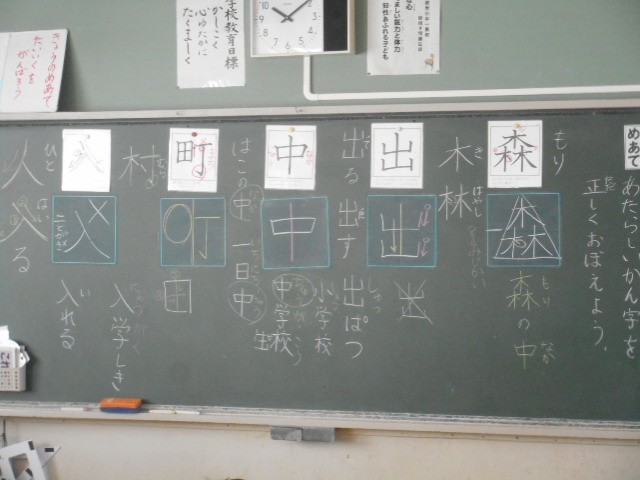 学校教育目標
かしこく
心ゆたかに
たくましく
きょうのめあて
たいいくを
がんばろう
めあて
あたらしいかん字を
正しくおぼえよう。
もり
森
森
森の中
もり
なか
木
き
林
はやし
出
出
出る
出す
出ぱつ
中
中
小学校
中学校
生
はこの中
一日中
町
町
田
村
むら
入
入
入れる
い
入学しき
にゅうがく
人
ひと
入る
はい